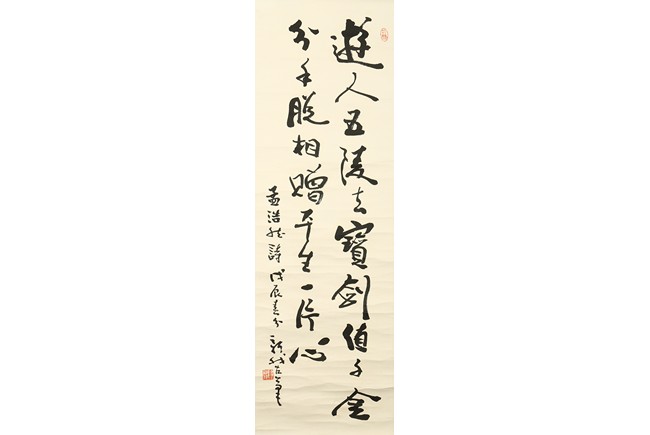 遊人五陵去寶劍值千金
分手脫相贈平生一片心
孟浩然詩 戊辰春分